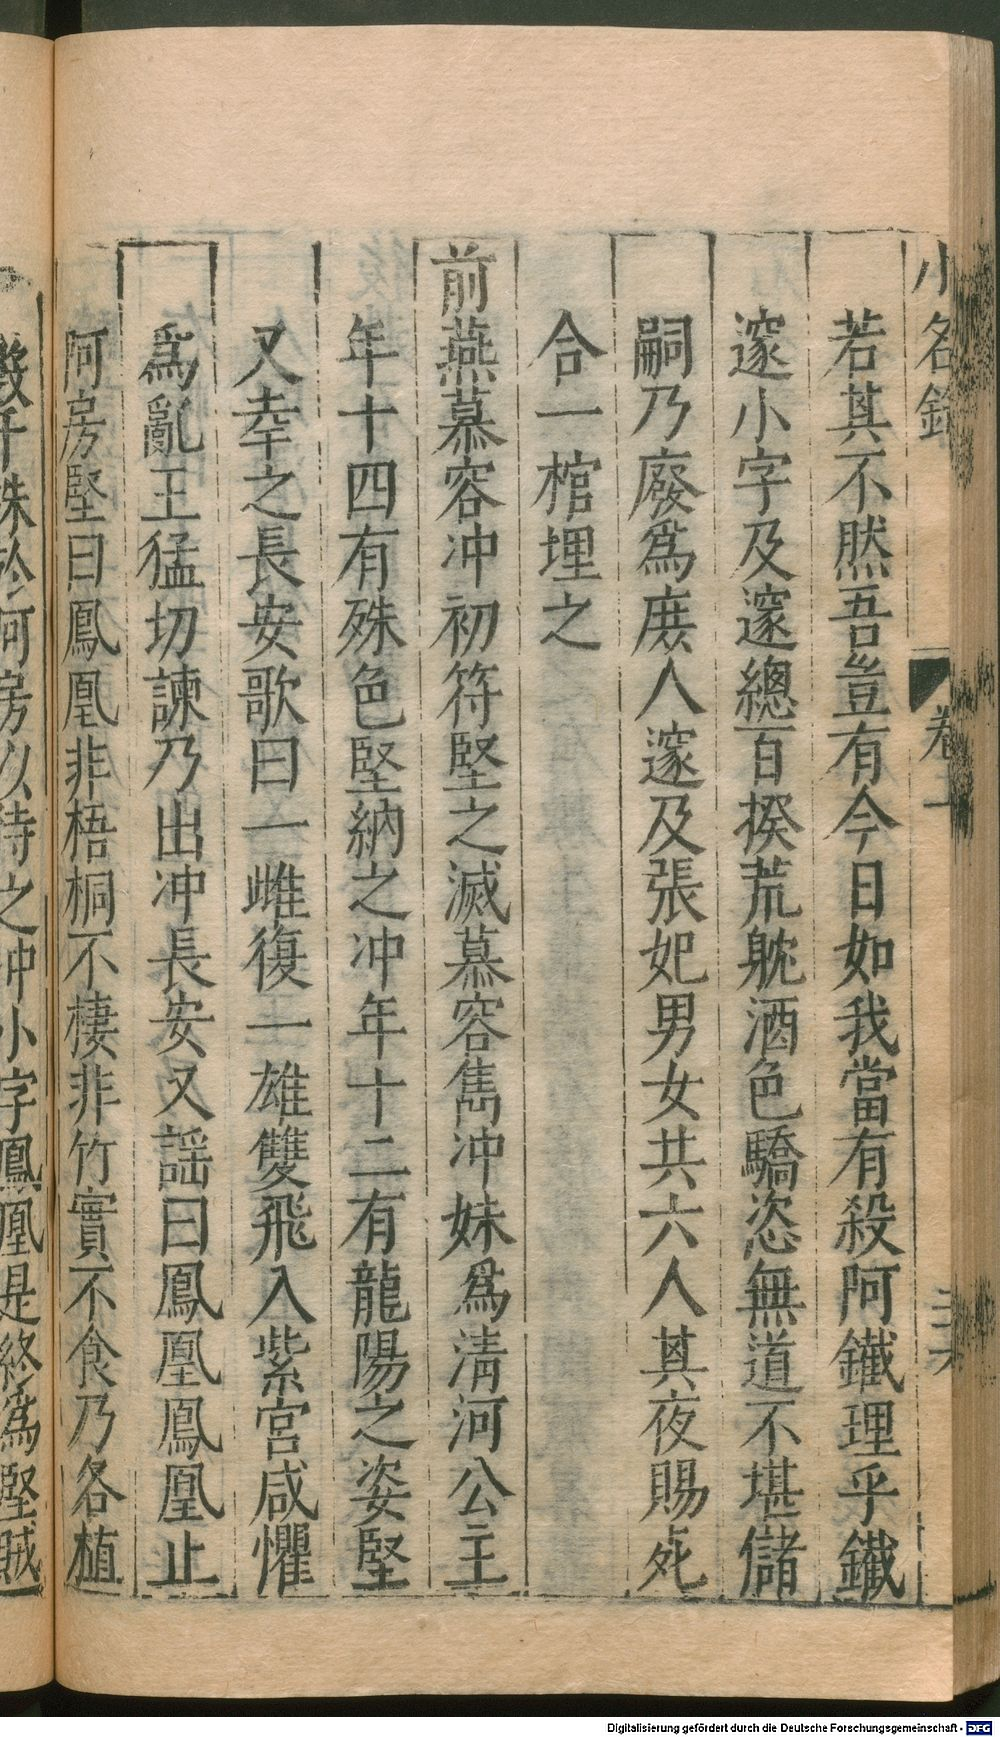 小名錄 卷下
若其不然吾豈有今日如我當有殺阿鐵理乎鐵
邃小字及邃總百揆荒躭酒色驕恣無道不堪儲
嗣乃廢爲庻人邃及張妃男女共六人其夜賜死
合一棺埋之
前燕慕容冲初符堅之滅慕容雋冲妹爲清河公主
年十四有殊色堅納之冲年十二有龍陽之姿堅
又幸之長安歌曰一雌復一雄雙飛入紫宮咸懼
爲亂王猛切諫乃出冲長安又謡曰鳳凰鳳凰止
阿房堅曰鳳凰非梧桐不棲非竹實不食乃各植
數千株於阿房以待之冲小字鳳凰是終爲堅賊
Digitalisierung gefördert durch die Deutsche Forschungsgemeinschaft - DFG